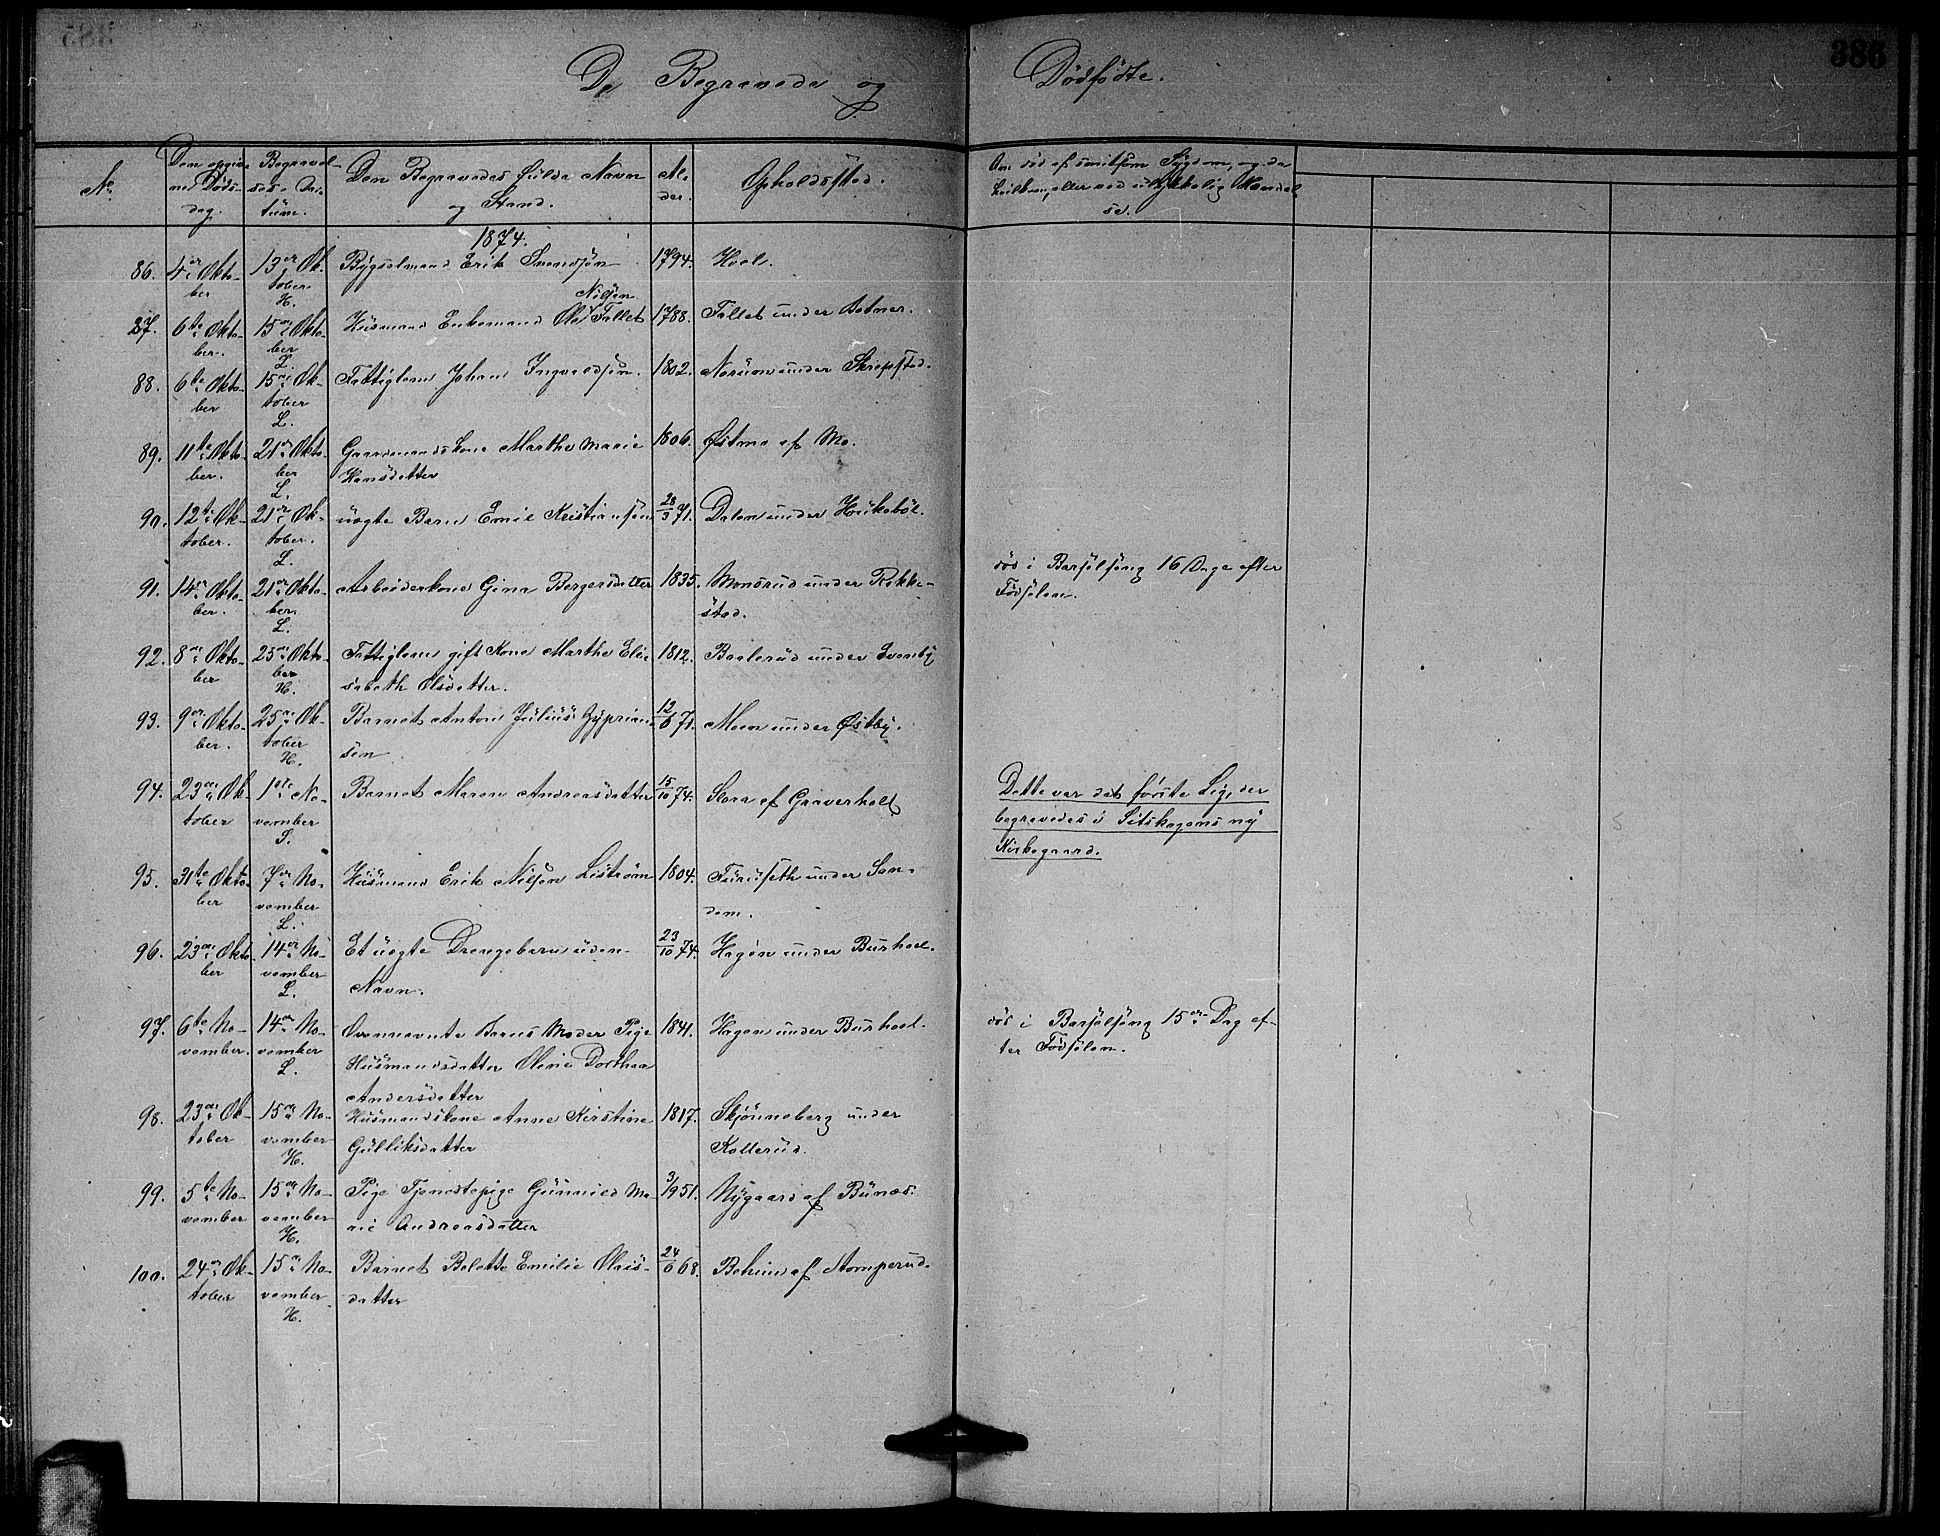 386
De Begravede og Dødfødte.
No. Den opgivne Dødsdag. Begravelses-Datum. Den Begravedes fulde Navn og Stand. Alder. Opholdssted. Om død af smitsom Sygdom, og da hvilken, eller ved ulykkelig Hændelse.
1874.
86. 4de Oktober 13de Oktober H. Bygselmand Erik Svendsen 1794. Hvel.
87. 6te Oktober. 15de Oktober L. Husmand Enkemand Ole Nilsen Fallet 1788. Fallet under
88. 6te Oktober 15de Oktober L. Fattiglem Johan Ingvaldsen. 1802. under
89. 11te Oktober. 21de Oktober L. Gaardmandskone Marthe Marie Hansdatter 1806. Østmo af Mo.
90. 12te Oktober. 21de Oktober. L. uægte Barn Emil Kristiansen 28/3 71. Dalen under
91. 14de Oktober. 21de Oktober. L. Arbeiderkone Gina Borgersdatter 1835. Monsrud under Rakkestad. død i Barselseng 16 Dage efter Fødselen.
92. 8de Oktober 25de Oktober H. Fattiglem gift Kone Marthe Elisabeth Olsdatter. 1812. under
93. 9de Oktober. 25de Oktober H. Barnet Anton Julius Zypriansen 12/6 71. Moen under Østby.
94. 23de Oktober 1ste November S. Barnet Maren Andreasdatter 15/10 74. Slora af Graverholt Dette var det første Lig, der begravedes i Setskogens ny Kirkegaard.
95. 31te Oktober 7de November L. Husmand Erik Nilsen Liström 1804. Furuseth under Sandem.
96. 23de Oktober 14de November L. Et uægte Drengebarn uden Navn. 23/10 74. Hagen under Burhol.
97. 6te November. 14de November L. Ovennævnte Barns Moder Pige Husmandsdatter Oline Dorthea Andersdatter 1841. Hagen under Burhol. død i Barselseng 15de Dag efter Fødselen.
98. 23de Oktober 15de November H. Husmandskone Anne Kirstine Gulliksdatter 1817. Skjønneberg under Kollerud.
99. 5te November 15de November H. Pige Tjenestepige Gunnild Marie Andreasdatter 3/9 51. Nygaard af Bunæs.
100. 24de Oktober 15de November H. Barnet Bolette Emilie Olaisdatter 24/6 68. af Stomperud.